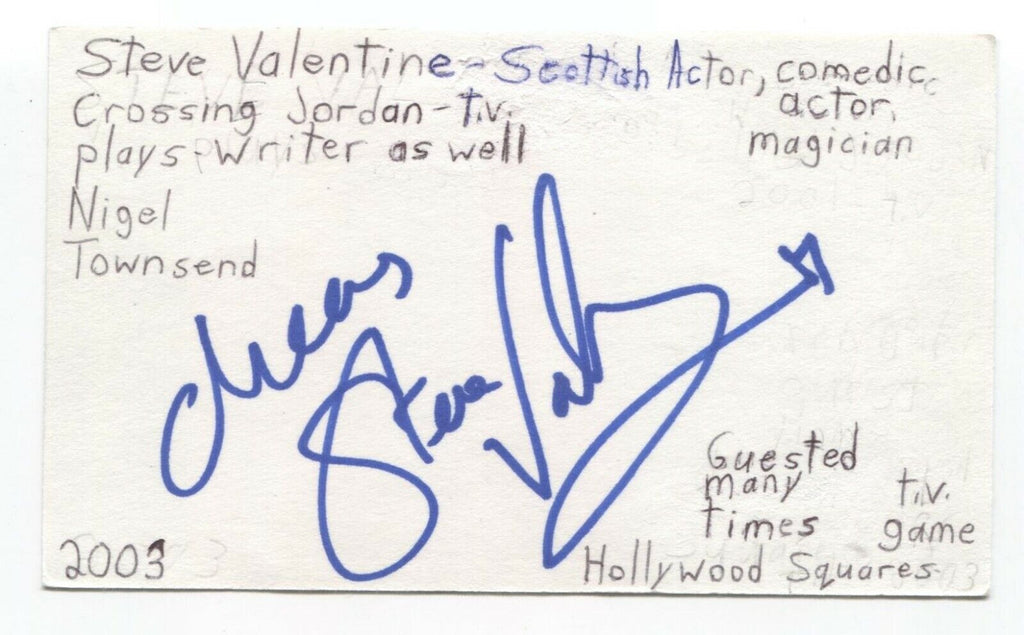 Steve Valentine - Scottish Actor, comedic
Crossing Jordan - t.v. actor,
plays - writer as well magician
Nigel
Townsend
cheers
Steve Valentine
Guested
many t.v.
times game
2003 Hollywood Squares